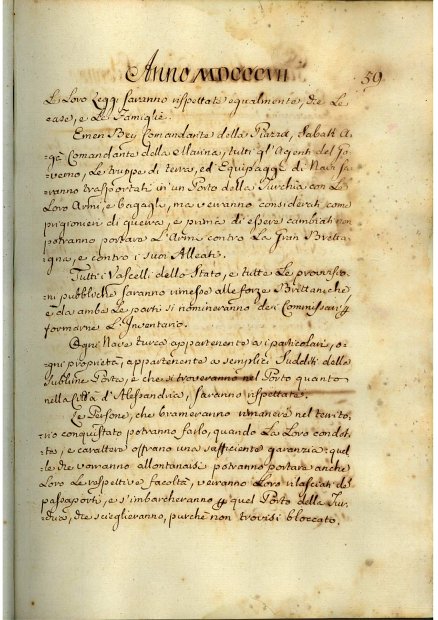 Anno MDCCCVII 59
Le Loro Leggi saranno rispettate egualmente, che Le
case, e Le Famiglie.
Emen Bey Comandante della Piazza, Sabak A-
gà Comandante della Marina, tutti gl'Agenti del Go-
verno, Le truppe di terra, ed Equipaggi di Navi sa-
ranno trasportati in un Porto della Turchia con Le
Loro Armi, e bagagli, ma veranno considerati come
prigionieri di guerra, e prima di essere cambiati non
potranno portare L'Arma contro La Gran Bretta-
igna, e contro i suoi Alleati.
Tutti i Vascelli dello Stato, e tutte Le provisio-
ni pubbliche saranno rimesse alle forze Brittaniche
e da ambe Le parti si nomineranno dei Commissari
formarne L'Inventario.
Ogni Nave turca appartenente a i particolari, o
ogni proprietà, appartenente a semplici Sudditi della
Sublime Porta, e che si troveranno nel Porto quanto
nella Città d'Alessandria, saranno rispettate.
Le Persone, che brameranno rimanere nel territo-
rio conquistato potranno farlo, quando La Loro condot-
ta, e carattere offrano una sufficiente garanzia: quel-
le che vorranno allontanarsi potranno portare anche
Loro Le respettive facoltà, veranno Loro rilasciati dei
passaporti, e s'imbarcheranno quel Porto della Tur-
chia, che scieglieranno, purchè non trovisi bloccato.